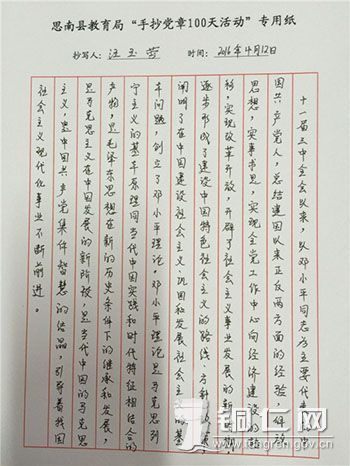 思南县教育局“手抄党章100天活动”专用纸
抄写人：汪玉芳 时间：2016年4月12日
十一届三中全会以来，以邓小平同志为主要代表的中
国共产党人，总结建国以来正反两方面的经验，解放
思想，实事求是，实现全党工作中心向经济建设的转
移，实现改革开放，开辟了社会主义事业发展的新时期，
逐步形成了建设中国特色社会主义的路线、方针、政策，
阐明了在中国建设社会主义、巩固和发展社会主义的基
本问题，创立了邓小平理论。邓小平理论是马克思列
宁主义的基本原理同当代中国实践和时代特征相结合的
产物，是毛泽东思想在新的历史条件下的继承和发展，
是马克思主义在中国发展的新阶段，是当代中国的马克思
主义，是中国共产党集体智慧的结晶，引导着我国
社会主义现代化事业不断前进。
铜仁网
www.tongren.gov.cn